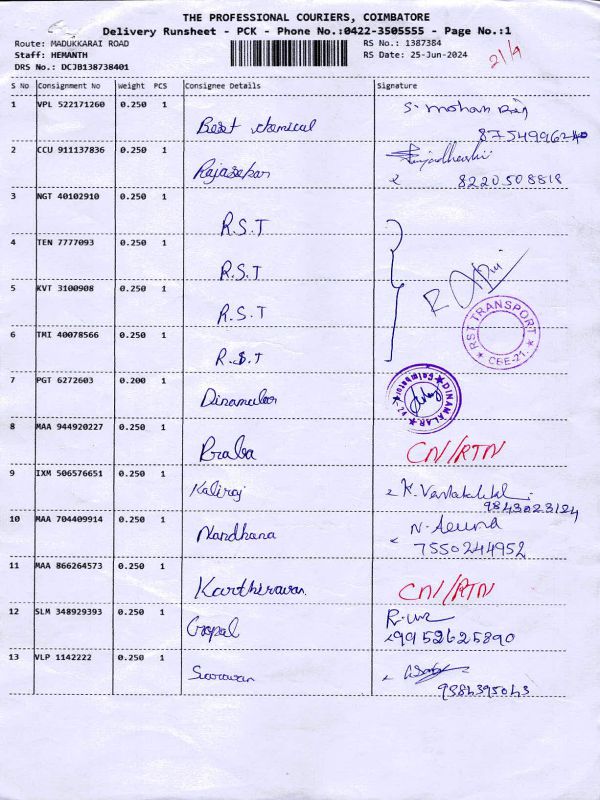 THE PROFESSIONAL COURIERS, COIMBATORE
Delivery Runsheet - PCK - Phone No.:0422-3505555 - Page No.:1
Route: MADUKKARAI ROAD RS No.: 1387384
Staff: HEMANTH RS Date: 25-Jun-2024
DRS No.: DCJB138738401
21/9
S No Consignment No Weight PCS Consignee Details Signature
1 VPL 522171260 0.250 1 Best chemical S. mohan
2 CCU 911137836 0.250 1 Rajasekar
8220508818
3 NGT 40102910 0.250 1 R.S.T
4 TEN 7777093 0.250 1 R.S.T
5 KVT 3100908 0.250 1 R.S.T
RST TRANSPORT
CBE-21.
6 TMI 40078566 0.250 1 R.S.T
7 PGT 6272603 0.200 1 Dinamalar
DINAMALAR
Coimbatore
8 MAA 944920227 0.250 1 Braba CN/RTN
9 IXM 506576651 0.250 1 Kaliraj K.
9843023124
10 MAA 704409914 0.250 1 Nandhana N.
7550244952
11 MAA 866264573 0.250 1 Karthiravan. CN/RTN
12 SLM 348929393 0.250 1 Gopal
9952625890
13 VLP 1142222 0.250 1 Saravan
9384395043